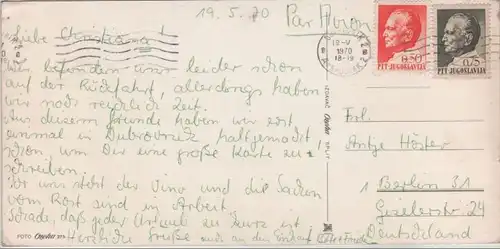 19.5.70 Par Avion
Liebe
19-V
1970
18-19
0.50
0.75
PTT JUGOSLAVIJA
PTT JUGOSLAVIJA
wir befinden uns leider schon
auf der Rückfahrt, allerdings haben
wir noch reichlich Zeit.
Aus diesem Grunde haben wir erst
einmal in Dubrovnik haltgemacht,
schon um Dir eine große Karte zu
schreiben.
Vor uns steht der Vino und die Sachen
vom Rost sind in Arbeit.
Schade, daß jeder Urlaub zu kurz ist
Herzliche Grüße
Frl.
Antje Höster
1 Berlin 31
Giselerstr. 24
Deutschland
FOTO
SPLIT